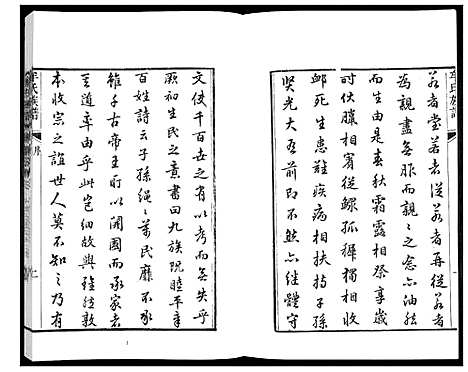 若者堂若者從若者再從若者
為親盡無服而親親之念亦油然
而生由是春秋霜露相祭享歲
時伏臘相宥從鰥孤獨相收
卹死生患難疾病相扶持子孫
賢光大吾前即不然亦繼體守
文使千百世之有以考而無失乎
厥初生民之意書曰九族既睦平章
百姓詩云子孫繩繩萬民靡不承
雖千古帝王所以開國而承家者
王道率由乎此豈細故與強弦敦
本收宗之誼世人莫不知之乃有
牟氏族譜
序